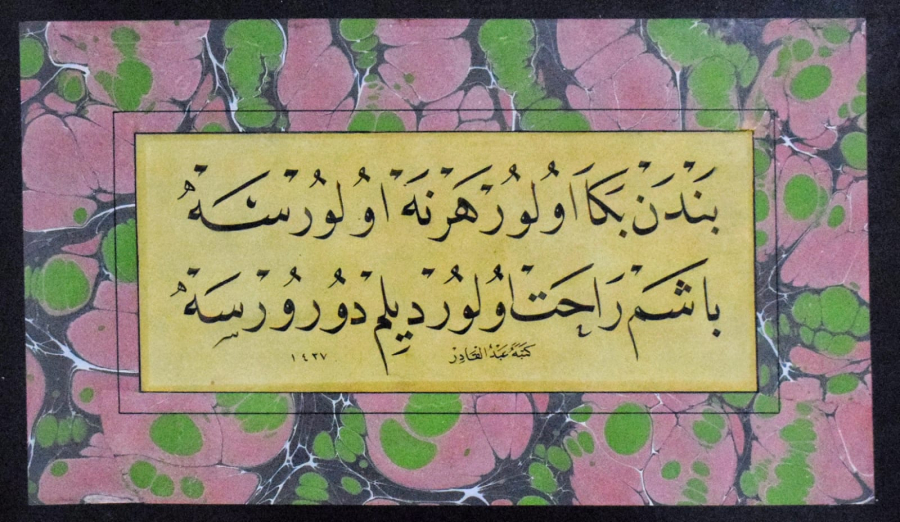 بَنْدَنْ بَكَا اُولُورْ هَرْنَهْ اُولُورْسَهْ
بَاشَمْ رَاحَتْ اُولُورْ دِيلِمْ دُورُورْسَهْ
كتبهُ عبدُ القادِرْ ١٤٣٧